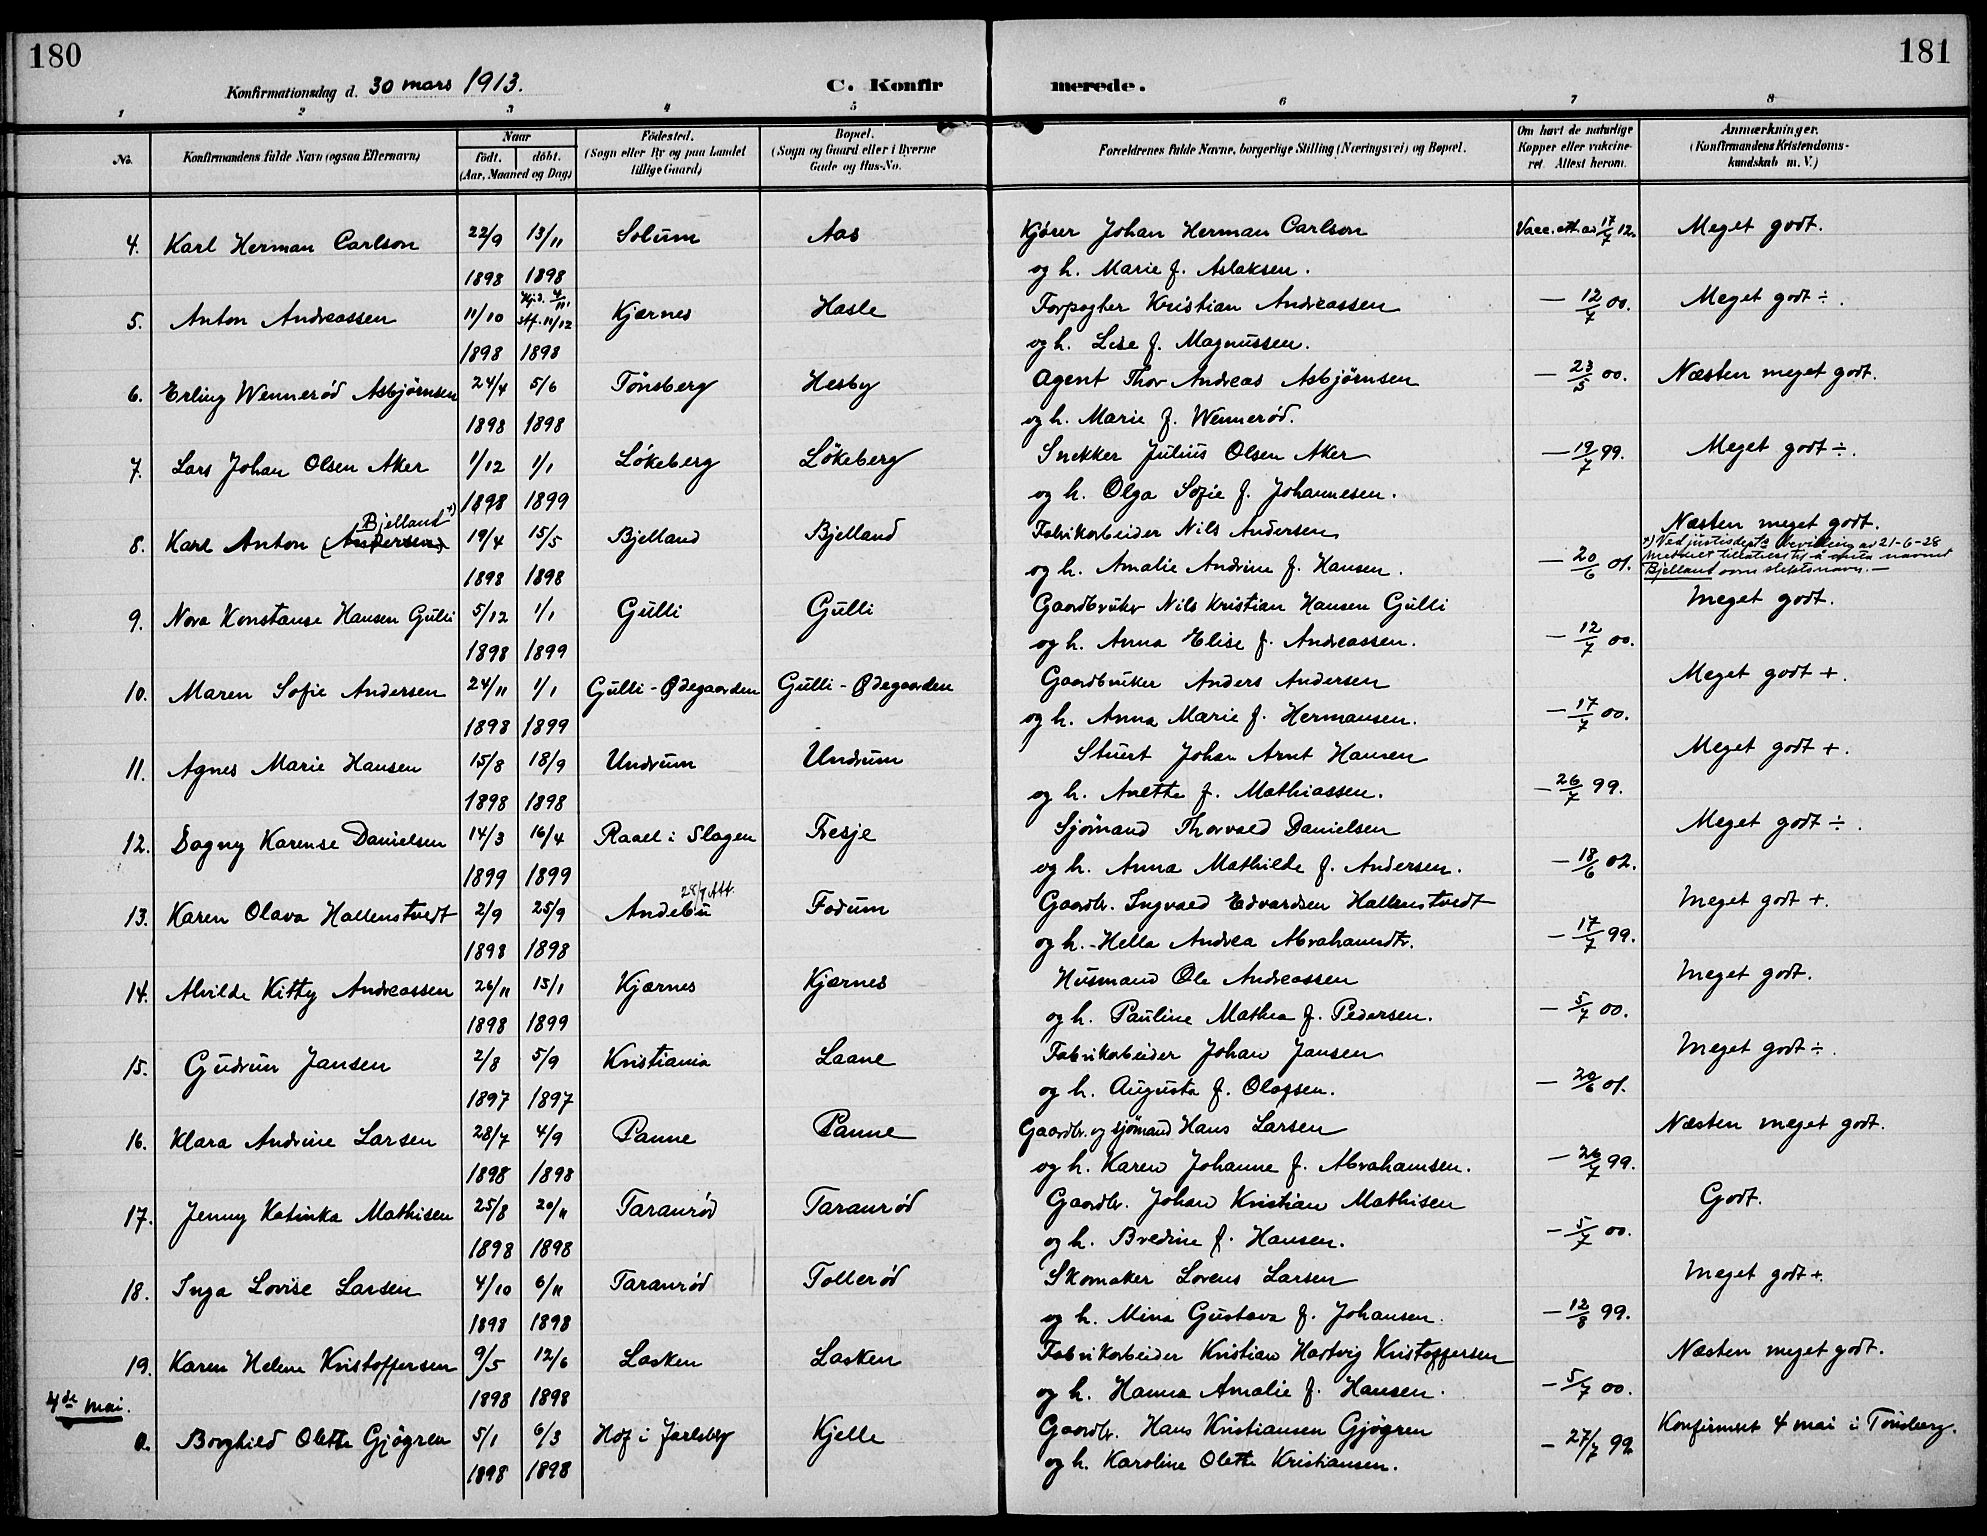 180
181
Konfirmationsdag d. 30 mars 1913.
C. Konfirmerede.
1 2 3 4 5 6 7 8
No.
Konfirmandens fulde Navn (ogsaa Efternavn)
Naar
födt. döbt.
(Aar, Maaned og Dag)
Födested.
(Sogn eller By og paa Landet
tillige Gaard)
Bopæl.
(Sogn og Gaard eller i Byerne
Gade og Hus-No.
Forældrenes fulde Navne, borgerlige Stilling (Næringsvei) og Bopæl.
Om havt de naturlige
Kopper eller vakcine-
ret. Attest herom.
Anmærkninger.
(Konfirmandens Kristendoms-
kundskab m. V.)
4. Karl Herman Carlson 22/9 13/11 Solum Aas Kjører Johan Herman Carlson Vacc. att. av 17/7 12. Meget godt.
1898 1898 og h. Marie f. Aslaksen.
5. Anton Andreassen 11/10 Hjd. 4/11, stf. 11/12 Kjærnes Hasle Forpagter Kristian Andreassen — 12/7 00. Meget godt ÷.
1898 1898 og h. Lise f. Magnussen.
6. Erling Wennerød Asbjørnsen 24/4 5/6 Tönsberg Hesby Agent Thor Andreas Asbjørnsen — 23/5 00. Næsten meget godt.
1898 1898 og h. Marie f. Wennerød.
7. Lars Johan Olsen Aker 1/12 1/1 Lökeberg Lökeberg Snekker Julius Olsen Aker — 19/7 99. Meget godt ÷.
1898 1899 og h. Olga Sofie f. Johannesen.
Bjelland *)
8. Karl Anton (Andersen) 19/4 15/5 Bjelland Bjelland Fabrikarbeider Nils Andersen Næsten meget godt.
1898 1898 og h. Amalie Andrine f. Hansen. — 20/6 01. *) Ved justisdepts bevilling av 21-6-28
meddelt tillatelse til å anta navnet
Bjelland som slektsnavn. —
9. Nora Konstanse Hansen Gulli 5/12 1/1 Gulli Gulli Gaardbruker Nils Kristian Hansen Gulli Meget godt.
1898 1899 og h. Anna Elise f. Andreassen. — 12/7 00.
10. Maren Sofie Andersen 24/11 1/1 Gulli-Ødegaarden Gulli-Ødegaarden Gaardbruker Anders Andersen Meget godt +.
1898 1899 og h. Anna Marie f. Hermansen. — 17/7 00.
11. Agnes Marie Hansen 15/8 18/9 Undrum Undrum Stuert Johan Arnt Hansen Meget godt +.
1898 1898 og h. Anette f. Mathiassen. — 26/7 99.
12. Dagny Karense Danielsen 14/3 16/4 Raael i Slagen Fresje Sjømand Thorvald Danielsen Meget godt ÷.
1899 1899 og h. Anna Mathilde f. Andersen. — 18/6 02.
13. Karen Olava Hallenstvedt 2/9 25/9 Andebu Fodum Gaardbr. Ingvald Edvardsen Hallenstvedt Meget godt +.
1898 1898 og h. Hella Andrea Abrahamsdtr. — 17/7 99.
14. Alvilde Kitty Andreassen 26/11 15/1 Kjærnes Kjærnes Husmand Ole Andreassen Meget godt.
1898 1899 og h. Pauline Mathea f. Pedersen. — 5/7 00.
15. Gudrun Jansen 2/8 5/9 Kristiania Laane Fabrikarbeider Johan Jansen Meget godt ÷.
1897 1897 og h. Augusta f. Olafsen. — 20/6 01.
16. Klara Andrine Larsen 28/7 4/9 Panne Panne Gaardbr. og sjømand Hans Larsen Næsten meget godt.
1898 1898 og h. Karen Johanne f. Abrahamsen. — 26/7 99.
17. Jenny Katinka Mathisen 25/8 20/11 Taranrød Taranrød Gaardbr. Johan Kristian Mathisen Godt.
1898 1898 og h. Bredine f. Hansen. — 5/7 00.
18. Inga Lovise Larsen 4/10 6/11 Taranrød Tollerød Skomaker Lorens Larsen Meget godt +.
1898 1898 og h. Mina Gustava f. Johansen. — 12/8 99.
19. Karen Helene Kristoffersen 9/5 12/6 Lasken Lasken Fabrikarbeider Kristian Hartvig Kristoffersen Næsten meget godt.
1898 1898 og h. Hanna Amalie f. Hansen. — 5/7 00.
4de mai.
0. Borghild Olette Gjøgren 5/1 6/3 Hof i Jarlsberg Kjelle Gaardbr. Hans Kristiansen Gjøgren — 27/7 99 Konfirmert 4 mai i Tönsberg.
1898 1898 og h. Karoline Olette Kristiansen.